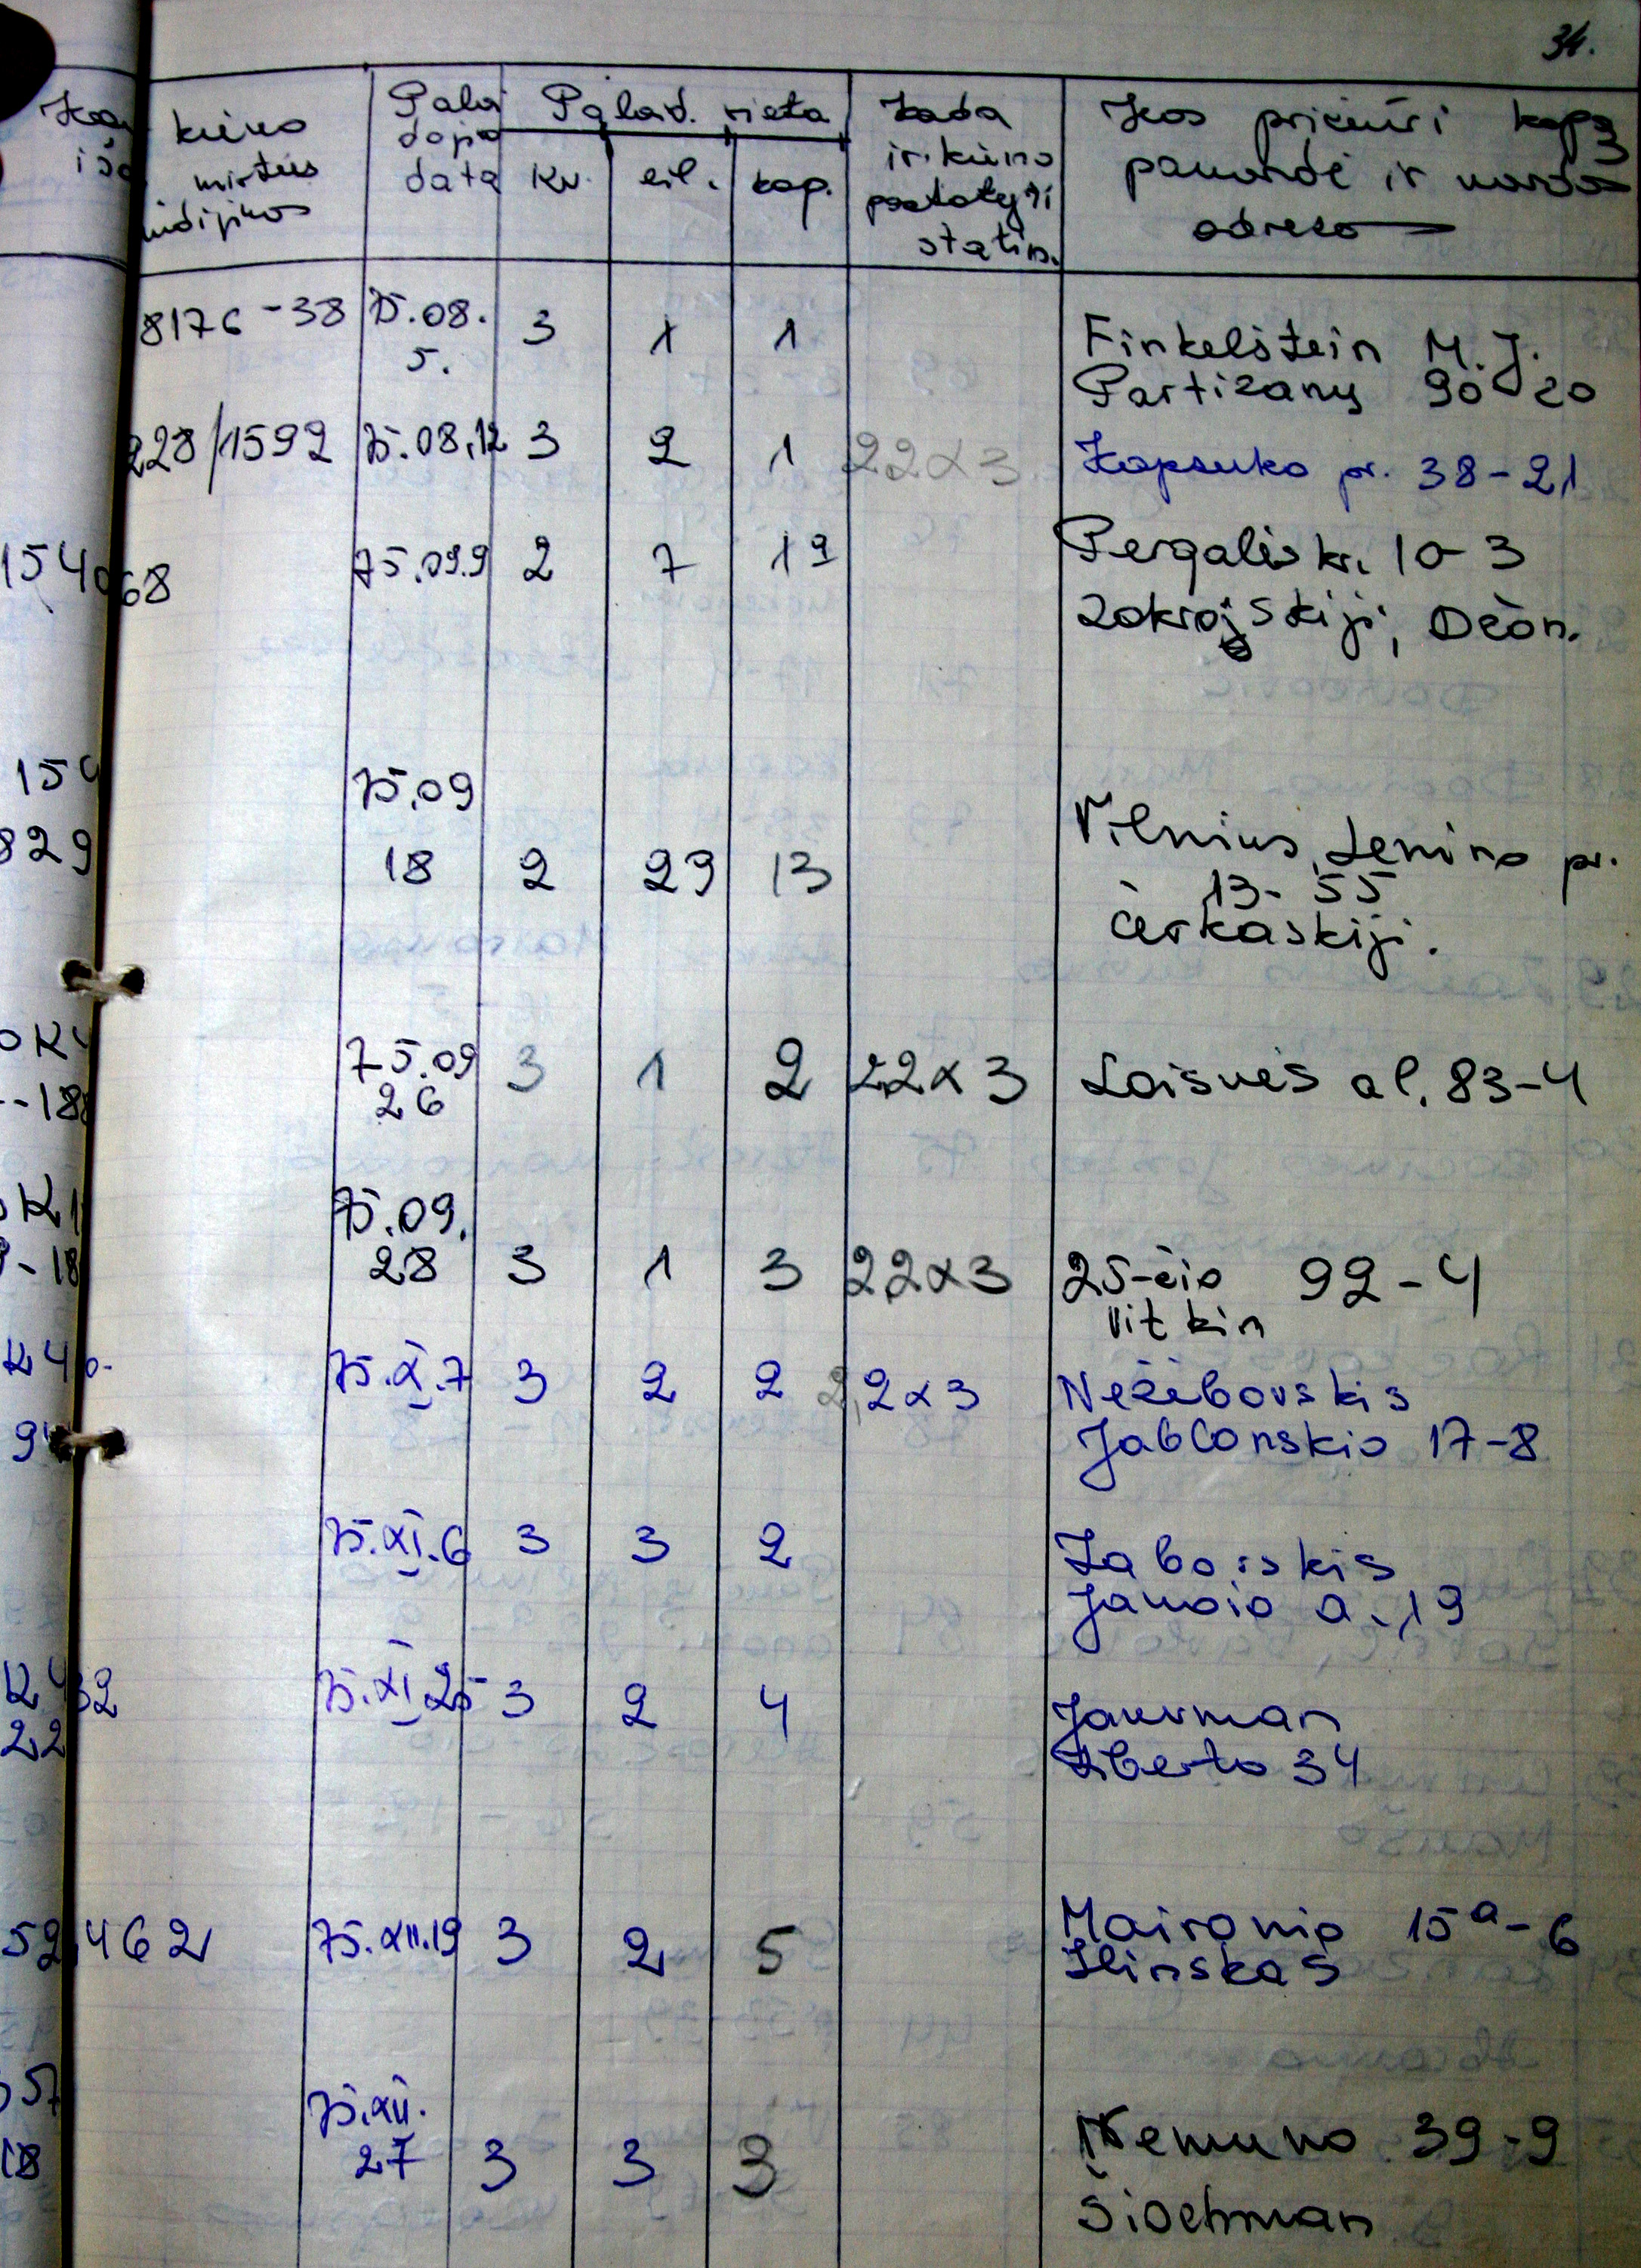 34.
kieno Palai Palaid. vieta kada Kas prižiūri kapą
mirties dojimo ir kieno pavardė ir vardas
data kv. eil. kap. pastatyti adresas
statin.
8176-38 75.08. 3 1 1 Finkelštein M. J.
5. Partizanų 90-20
228/1592 75.08.12 3 2 1 22x3 Kapsuko pr. 38-21
154068 75.09.9 2 7 19 Pergalės kr. 10-3
154 75.09
829 18 2 29 13 Vilnius, Lenino pr.
13-55
čerkaskiji.
75.09 3 1 2 2,2x3 Laisvės al. 83-4
26
75.09.
28 3 1 3 2,2x3 25-čio 92-4
Vitkin
75.X.7 3 2 2 2,2x3 Nežibovskis
Jablonskio 17-8
75.XI.6 3 3 2
19
75.XI.25 3 2 4
34
52462 75.XII.19 3 2 5 Maironio 15a-6
Ilinskas
75.XII.
27 3 3 3 Nemuno 39-9